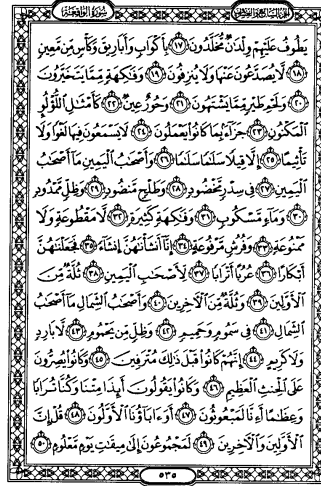 سورة الواقعة الجزء السابع والعشرون
يَطُوفُ عَلَيْهِمْ وِلْدَٰنٌ مُّخَلَّدُونَ ١٧ بِأَكْوَابٍ وَأَبَارِيقَ وَكَأْسٍ مِّن مَّعِينٍ
١٨ لَّا يُصَدَّعُونَ عَنْهَا وَلَا يُنزِفُونَ ١٩ وَفَٰكِهَةٍ مِّمَّا يَتَخَيَّرُونَ
٢٠ وَلَحْمِ طَيْرٍ مِّمَّا يَشْتَهُونَ ٢١ وَحُورٌ عِينٌ ٢٢ كَأَمْثَٰلِ اللُّؤْلُؤِ
الْمَكْنُونِ ٢٣ جَزَآءًۢ بِمَا كَانُوا۟ يَعْمَلُونَ ٢٤ لَا يَسْمَعُونَ فِيهَا لَغْوًا وَلَا
تَأْثِيمًا ٢٥ إِلَّا قِيلًا سَلَٰمًا سَلَٰمًا ٢٦ وَأَصْحَٰبُ الْيَمِينِ مَآ أَصْحَٰبُ
الْيَمِينِ ٢٧ فِى سِدْرٍ مَّخْضُودٍ ٢٨ وَطَلْحٍ مَّنضُودٍ ٢٩ وَظِلٍّ مَّمْدُودٍ
٣٠ وَمَآءٍ مَّسْكُوبٍ ٣١ وَفَٰكِهَةٍ كَثِيرَةٍ ٣٢ لَّا مَقْطُوعَةٍ وَلَا
مَمْنُوعَةٍ ٣٣ وَفُرُشٍ مَّرْفُوعَةٍ ٣٤ إِنَّآ أَنشَأْنَٰهُنَّ إِنشَآءً ٣٥ فَجَعَلْنَٰهُنَّ
أَبْكَارًا ٣٦ عُرُبًا أَتْرَابًا ٣٧ لِّأَصْحَٰبِ الْيَمِينِ ٣٨ ثُلَّةٌ مِّنَ
الْأَوَّلِينَ ٣٩ وَثُلَّةٌ مِّنَ الْءَاخِرِينَ ٤٠ وَأَصْحَٰبُ الشِّمَالِ مَآ أَصْحَٰبُ
الشِّمَالِ ٤١ فِى سَمُومٍ وَحَمِيمٍ ٤٢ وَظِلٍّ مِّن يَحْمُومٍ ٤٣ لَّا بَارِدٍ
وَلَا كَرِيمٍ ٤٤ إِنَّهُمْ كَانُوا۟ قَبْلَ ذَٰلِكَ مُتْرَفِينَ ٤٥ وَكَانُوا۟ يُصِرُّونَ
عَلَى الْحِنثِ الْعَظِيمِ ٤٦ وَكَانُوا۟ يَقُولُونَ أَئِذَا مِتْنَا وَكُنَّا تُرَابًا
وَعِظَٰمًا أَءِنَّا لَمَبْعُوثُونَ ٤٧ أَوَءَابَآؤُنَا الْأَوَّلُونَ ٤٨ قُلْ إِنَّ
الْأَوَّلِينَ وَالْءَاخِرِينَ ٤٩ لَمَجْمُوعُونَ إِلَىٰ مِيقَٰتِ يَوْمٍ مَّعْلُومٍ ٥٠
٥٣٥